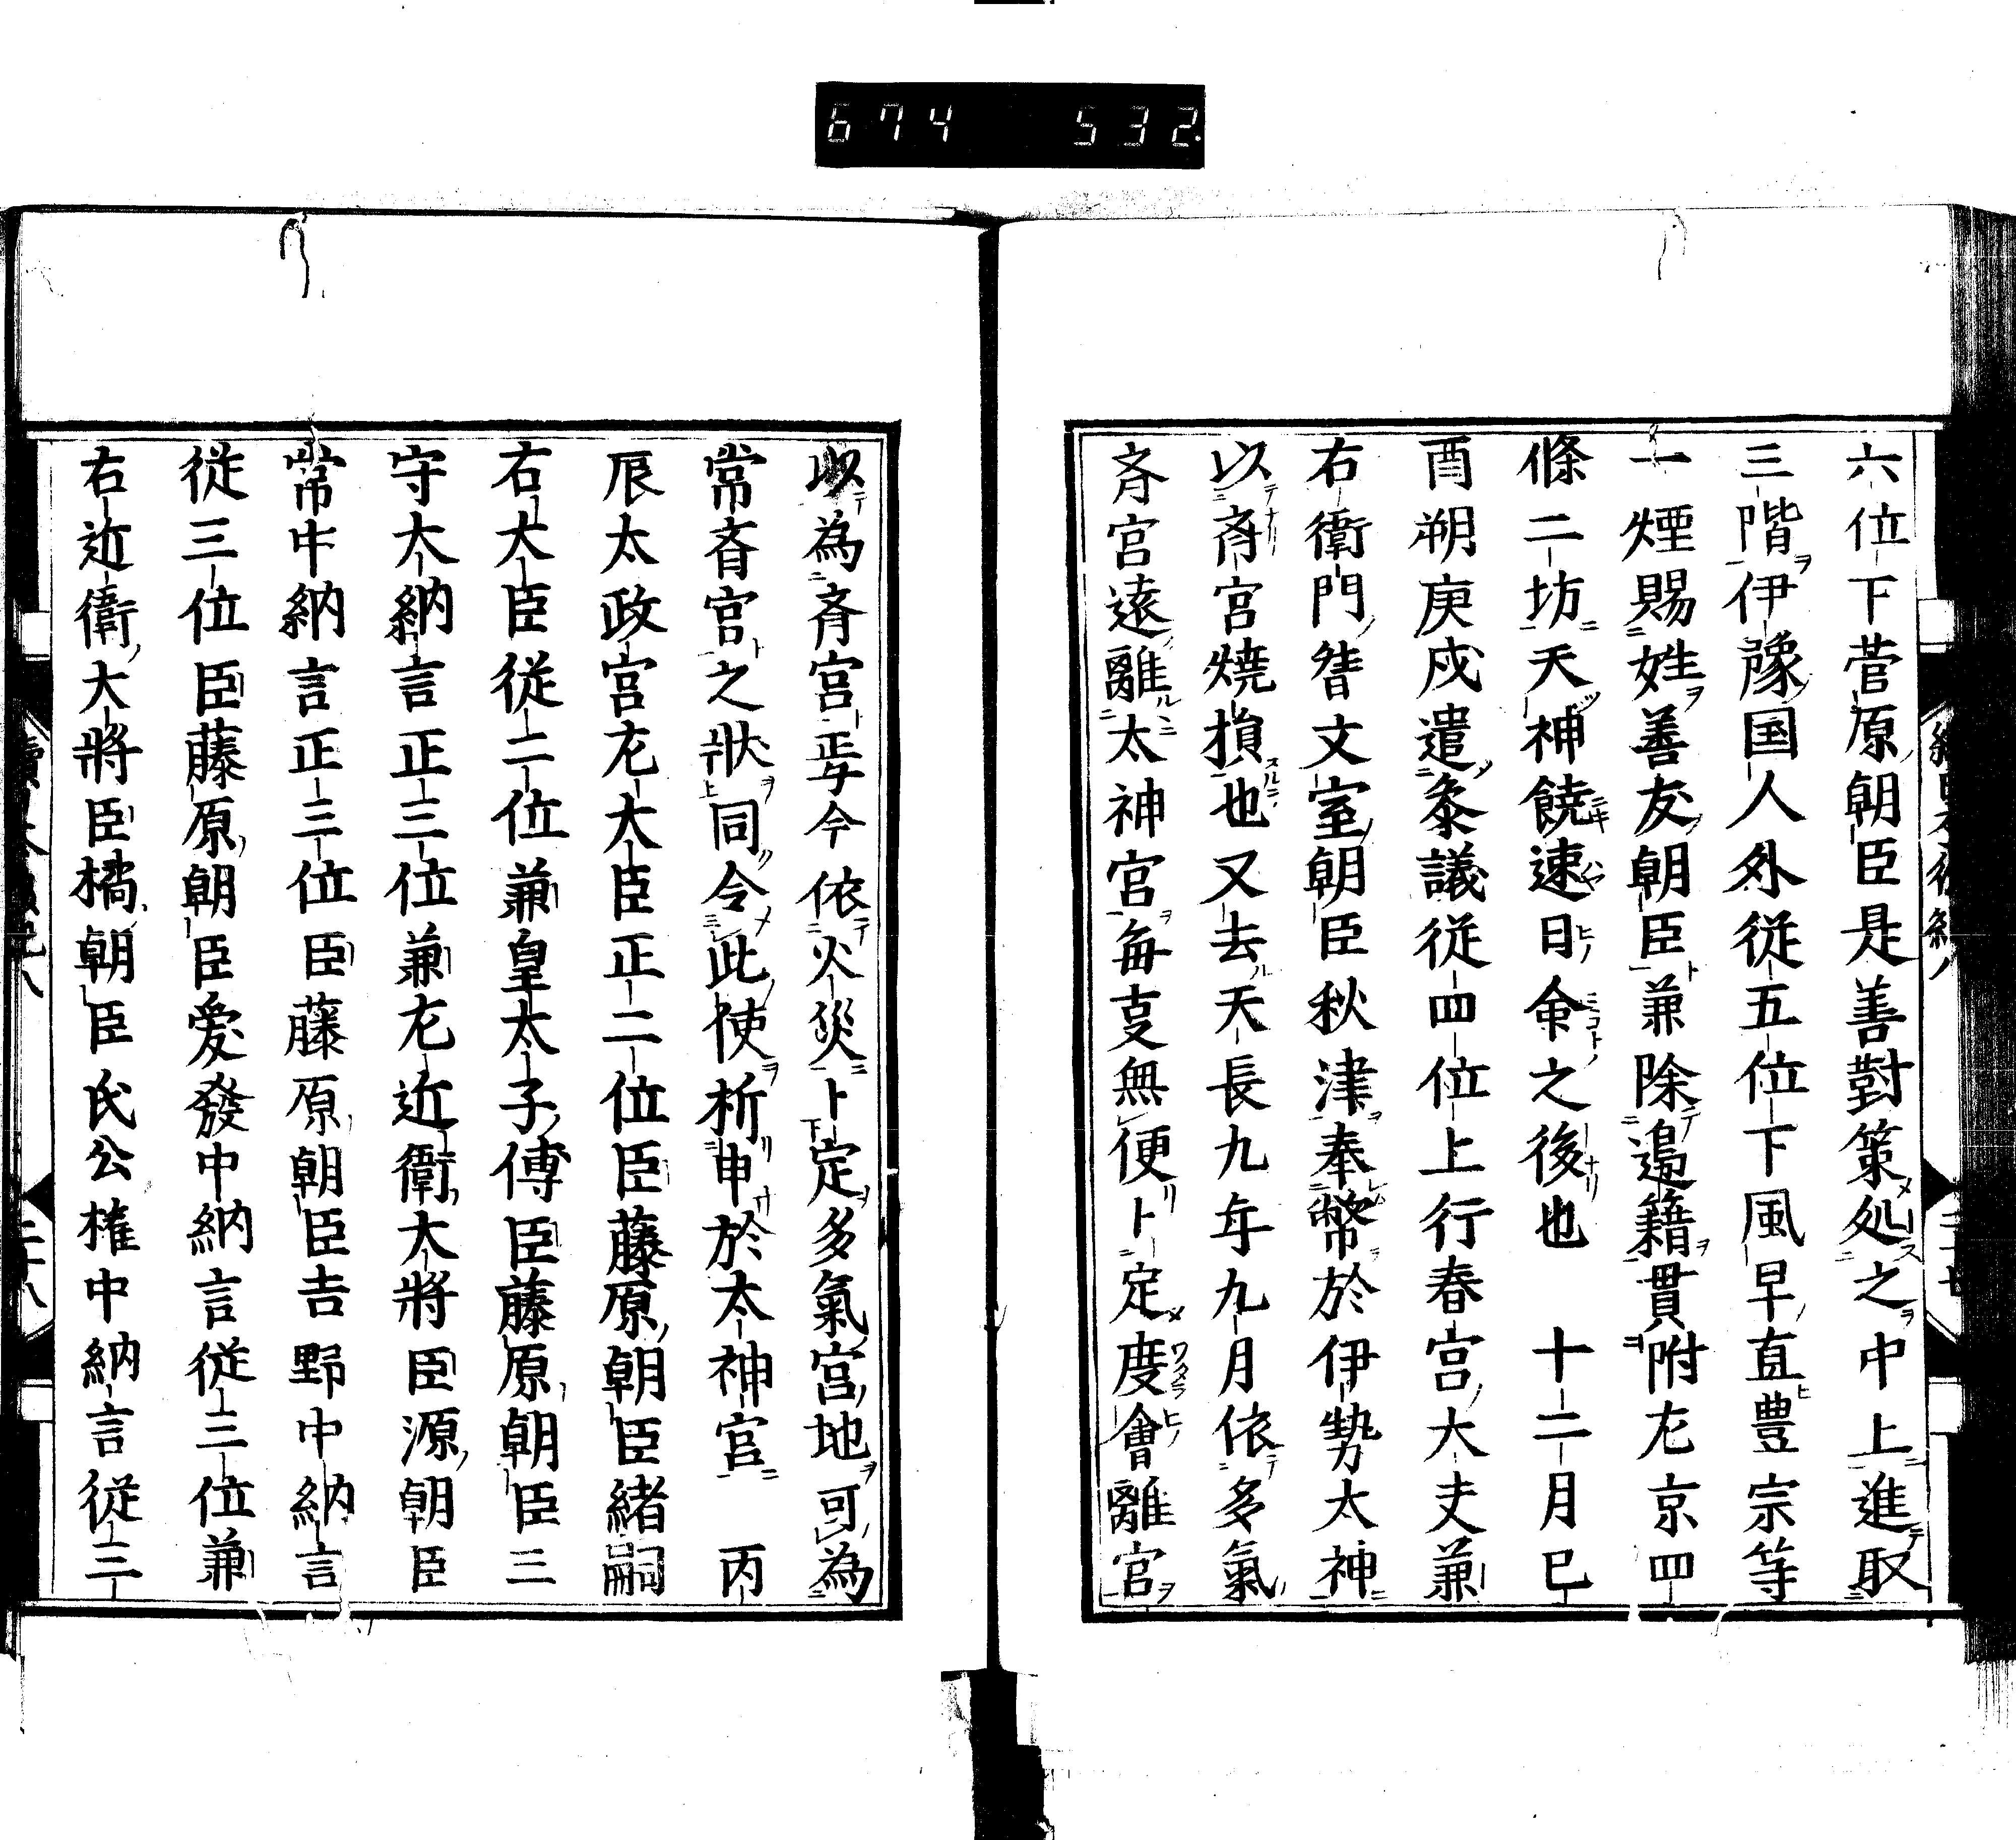 674 532
六位下菅原朝臣是善對策処之中上進取
三階伊豫国人外従五位下風早直豊宗等
一煙賜姓善友朝臣兼除邉籍貫附左京四
條二坊天神饒速日命之後也 十二月己
酉朔庚戌遣叅議従四位上行春宮大夫兼
右衛門督文室朝臣秋津奉幣於伊勢太神
以斎宮燒損也又去天長九年九月依多氣
斎宮遠離太神宮毎事無便卜定度會離宮
以為斎宮焉今依火災卜定多氣宮地可為
常斎宮之狀同令此使祈申於太神宮 丙
辰太政官左大臣正二位臣藤原朝臣緒嗣
右大臣従二位兼皇太子傅臣藤原朝臣三
守大納言正三位兼左近衛大將臣源朝臣
常中納言正三位臣藤原朝臣吉野中納言
従三位臣藤原朝臣愛發中納言従三位兼
右近衛大將臣橘朝臣氏公権中納言従三